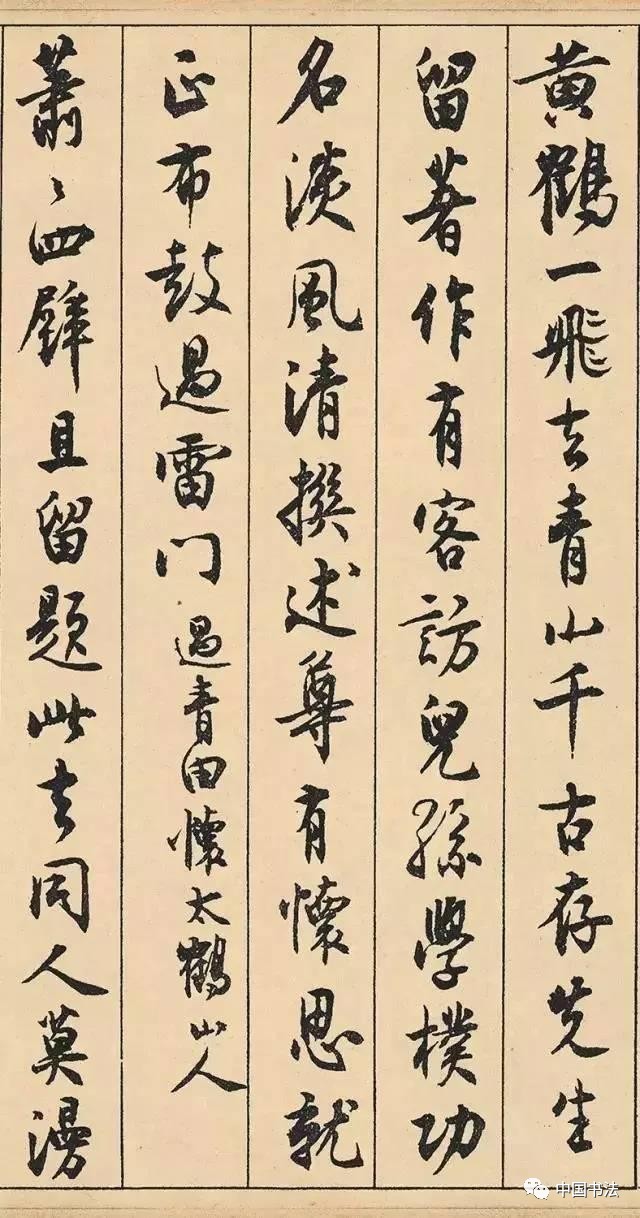 黄鶴一飛去青山千古存先生
留著作有客訪兒孫學樸功
名淡風清撰述尊有懷思就
正布鼓過雷门過青田懷太鶴山人
蕭〻四壁且留題此去同人莫漫
中国书法